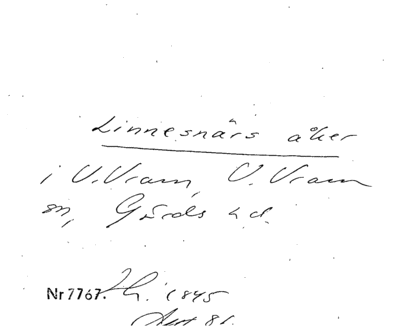 Linnesnärs åker
i V. Vram, V. Vram
sn, Gärds hd.
Nr 7767. 1845
Avt 81.